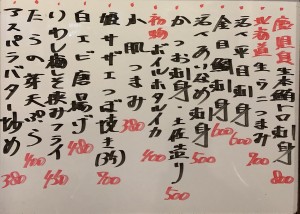 奄美生本鮪トロ刺身 800
北海道生うにつまみ 900
活〆平目刺身 600
金目鯛刺身 600
活〆あいなめ刺身 500
かつお刺身 土佐造り 500
初物ボイルホタルイカ 400
小肌つまみ 380
姫サザエつぼ焼き(3ヶ) 700
白エビ唐揚げ 500
いわし梅しそ挟みフライ 450
たらの芽天ぷら 400
アスパラバター炒め 380